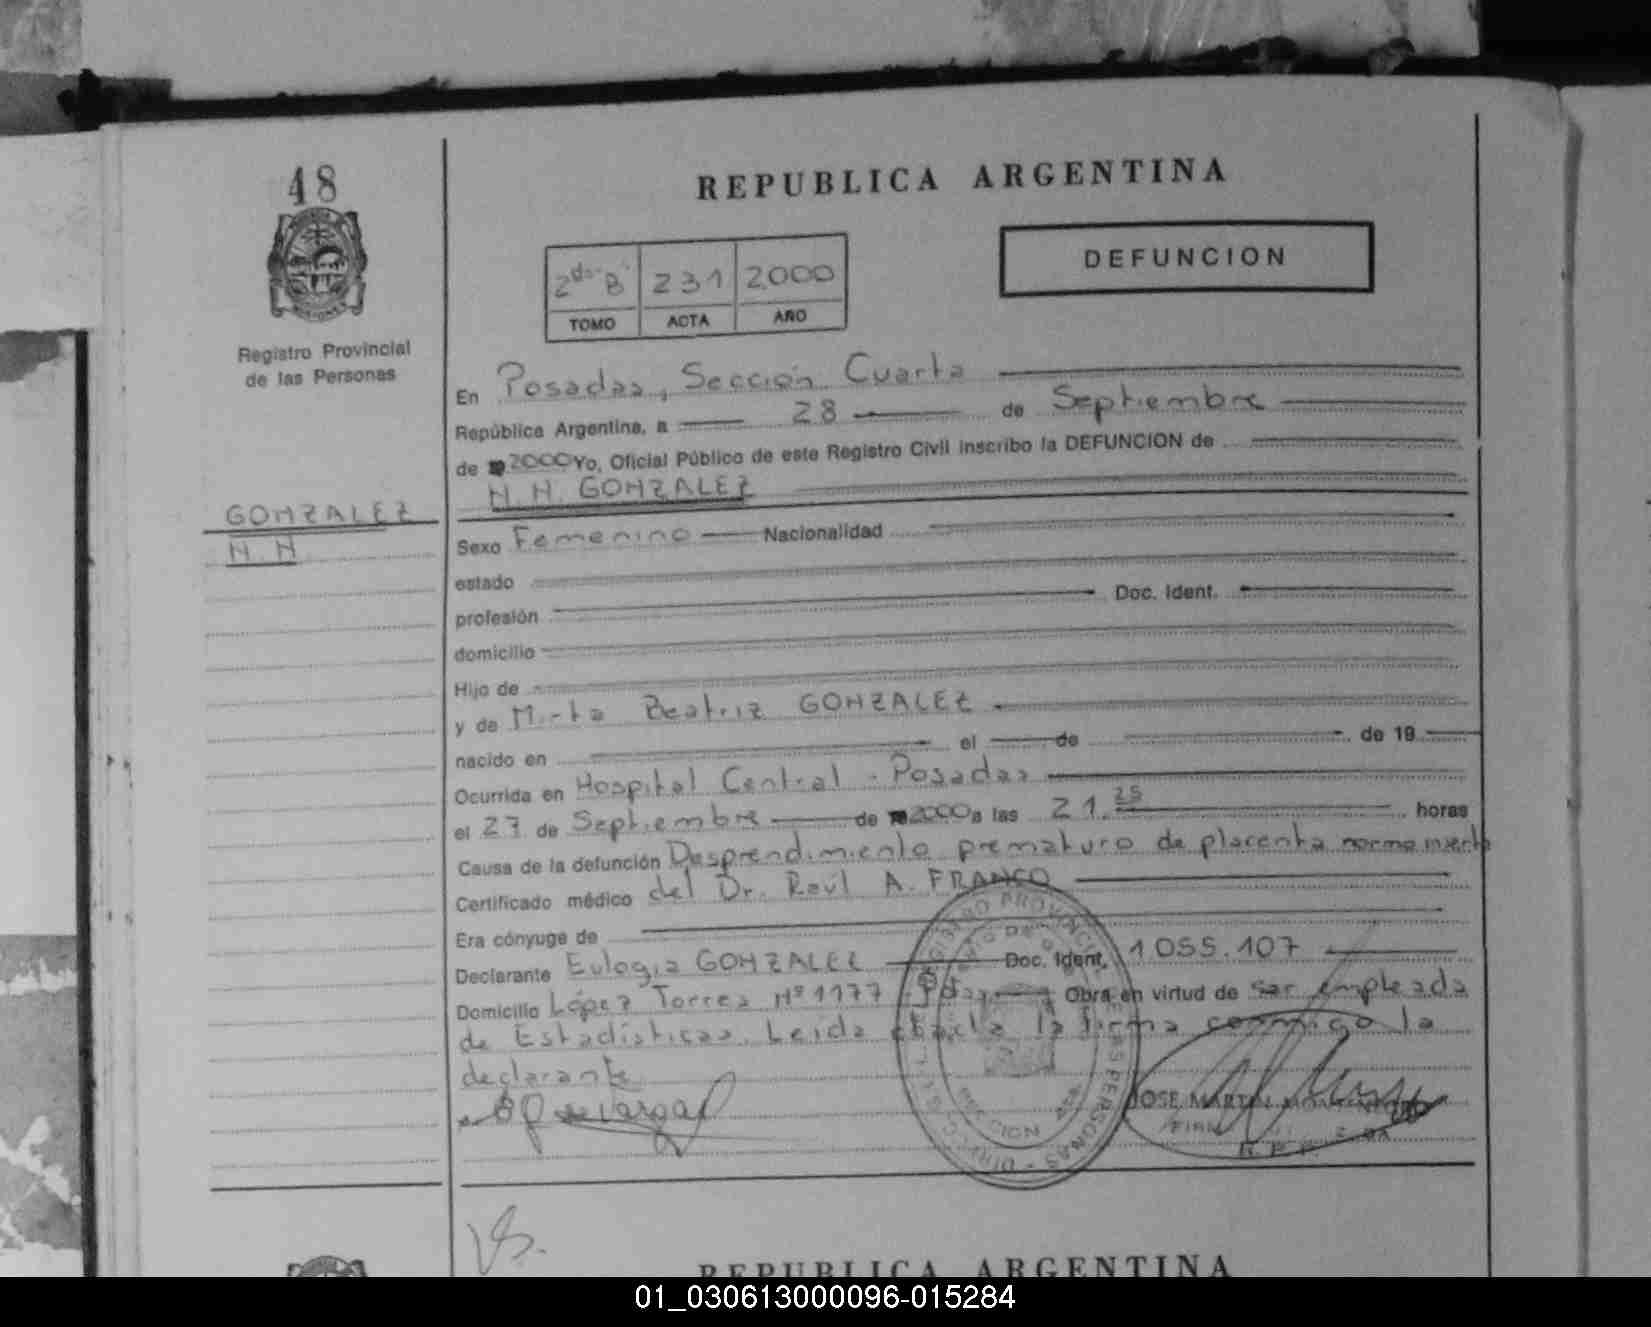 48
REPUBLICA ARGENTINA
DEFUNCION
2do B 231 2000
TOMO ACTA AÑO
Registro Provincial
de las Personas
En Posadas, Sección Cuarta
República Argentina, a 28 de Septiembre
de 2000 Yo, Oficial Público de este Registro Civil inscribo la DEFUNCION de
N.N. GONZALEZ
GONZALEZ
N.N
Sexo Femenino Nacionalidad
estado
profesión Doc. Ident.
domicilio
Hijo de
y de Mirta Beatriz GONZALEZ
nacido en el de de 19
Ocurrida en Hospital Central - Posadas
el 27 de Septiembre de 2000 a las 21.25 horas
Causa de la defunción Desprendimiento prematuro de placenta normo inserta
Certificado médico del Dr. Raúl A. FRANCO
Era cónyuge de
Declarante Eulogia GONZALEZ Doc. Ident. 1055.107
Domicilio López Torres Nº 1177 Pdas. Obra en virtud de ser empleada
de Estadísticas. Leída el acta la firma conmigo la
declarante
JOSE MARTIN
REPUBLICA ARGENTINA
01_030613000096-015284